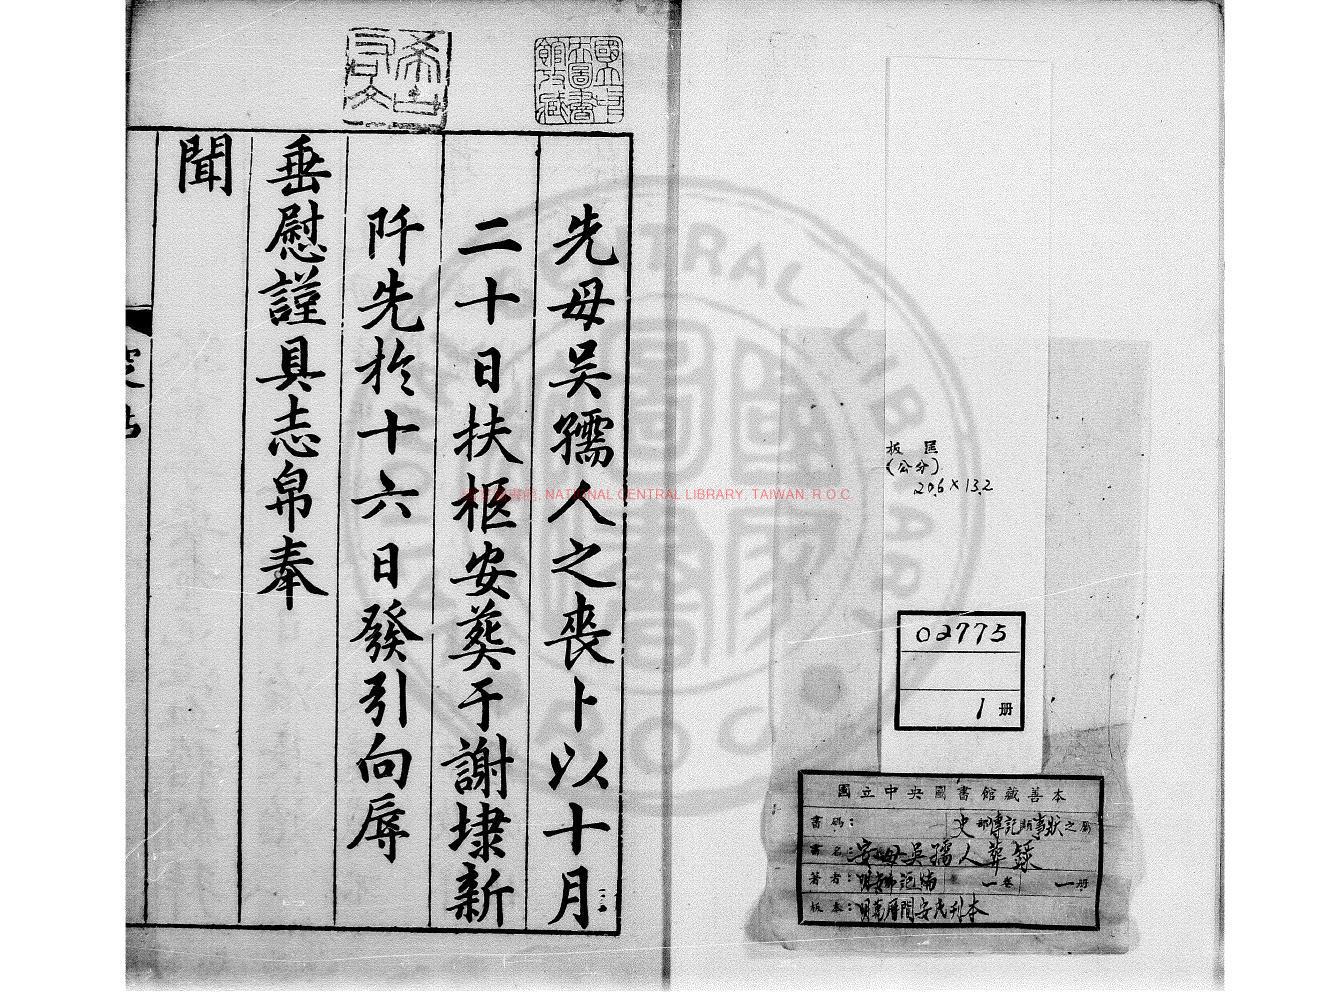 先母吳孺人之喪卜以十月
二十日扶柩安葬于謝埭新
阡先於十六日發引向辱
垂慰謹具志帛奉
聞
國立中央圖書館收藏
板匡
(公分)
20.6×13.2
02775
1册
國立中央圖書館藏善本
書碼:
史部傳記類事狀之屬
書名:安母吳孺人葬錄
著者:
一卷
一册
版本:明萬曆間安氏刊本
NATIONAL CENTRAL LIBRARY, TAIWAN, R.O.C.